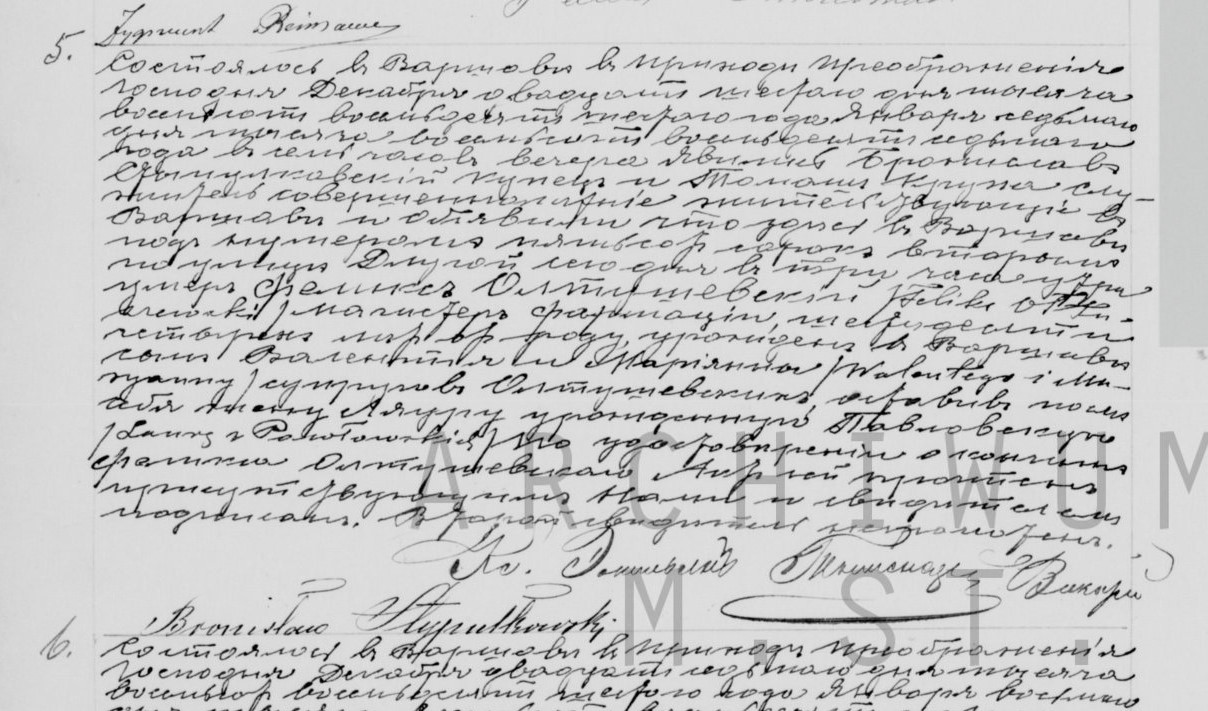 Zygmunt Reimann
5.
Состоялось въ Варшавѣ въ приходѣ Преображенія
Господня Декабря двадцать шестаго дня тысяча
восемьсотъ восемьдесятъ шестаго года Января седьмаго
дня тысяча восемьсотъ восемьдесятъ седьмаго
года въ семь часовъ вечера явились Брониславъ
Стыпулковскій купецъ и Томашъ Крупа слу-
житель совершеннолѣтніе жительствующіе въ
Варшавѣ и объявили что здѣсь въ Варшавѣ
подъ нумеромъ пятьсотъ сорокъ вторымъ
по улицѣ Длугой сего дня въ три часа утра
умеръ Феликсъ Олтушевскій /Feliks Ołtu-
szewski/ магистеръ фармаціи, шестьдесятъ
лѣтъ отъ роду, урожденъ въ Варшавѣ
сынъ Валентія и Маріанны /Walentego i Ma-
ryanny/ супруговъ Олтушевскихъ, оставивъ послѣ
себя жену Лауру урожденную Павловскую
/Laurę z Pawłowskich/ По удостовѣреніи о кончинѣ
Феликса Олтушевскаго Актъ сей прочтенъ
присутствующимъ Нами и свидѣтелемъ
подписанъ. Второй свидѣтель неграмотенъ.
Кс. Викарій
Bronisław Stypułkowski
6.
Состоялось въ Варшавѣ въ приходѣ Преображенія
Господня Декабря двадцать седьмаго дня тысяча
восемьсотъ восемьдесятъ шестаго года Января восьмаго
ARCHIWUM
M. ST.